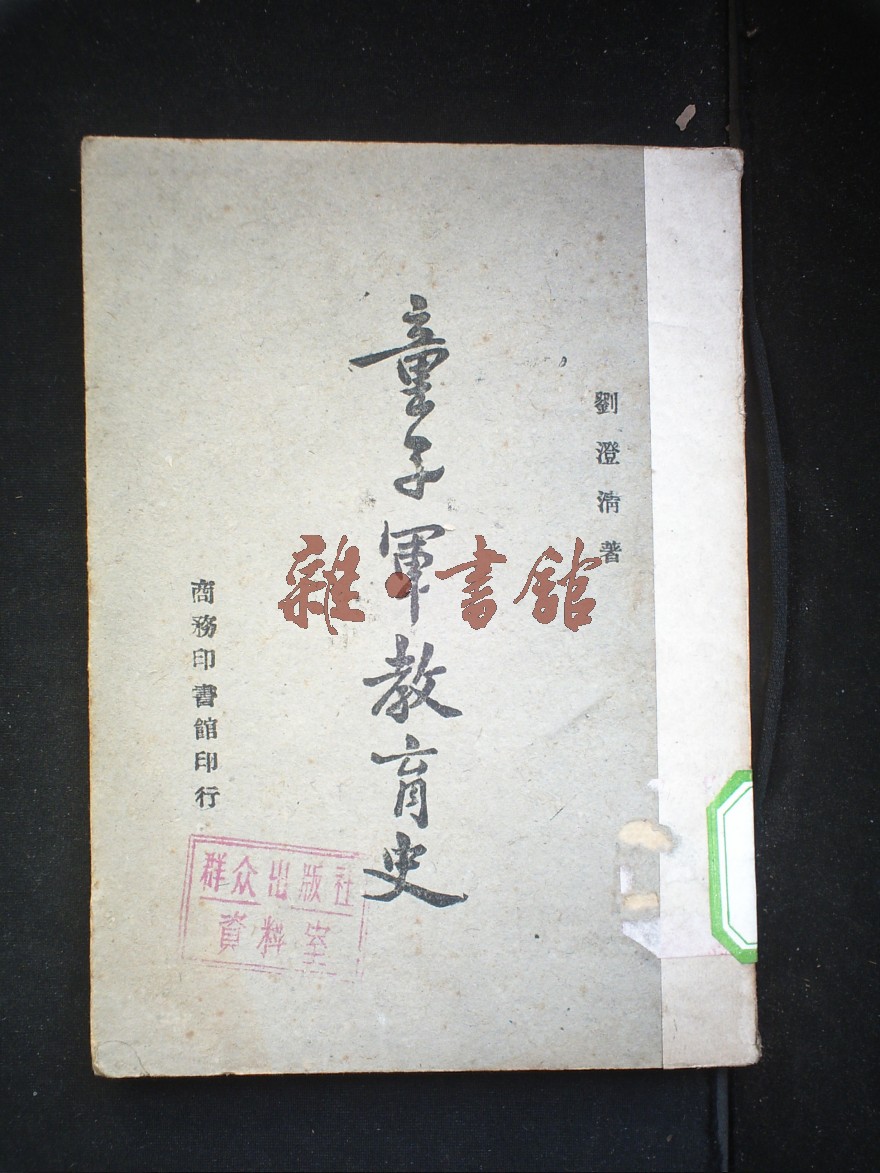 劉澄清著
童子軍教育史
商務印書館印行
雜·書館
群众出版社
資料室